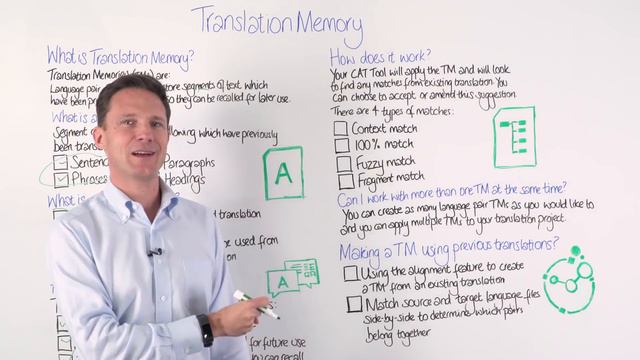 Translation Memory
What is Translation Memory?
Translation Memories are:
Language pair store segments of text which
have been pr so they can be recalled for later use.
What is a
Segment llowing which have previously
been trans
Sentenc Paragraphs
Phrases Headings
What is
d translation
be used from
s:
for future use
you can recall
How does it work?
Your CAT Tool will apply the TM and will look
to find any matches from existing translation. You
can choose to accept or amend this suggestion
There are 4 types of matches:
Context match
100% match
Fuzzy match
Fragment match
Can I work with more than one TM at the same time?
You can create as many language pair TMs as you would like to
and you can apply multiple TMs to your translation project.
Making a TM using previous translations?
Using the alignment feature to create
a TM from an existing translation
Match source and target language files
side-by-side to determine which pairs
belong together
A
A